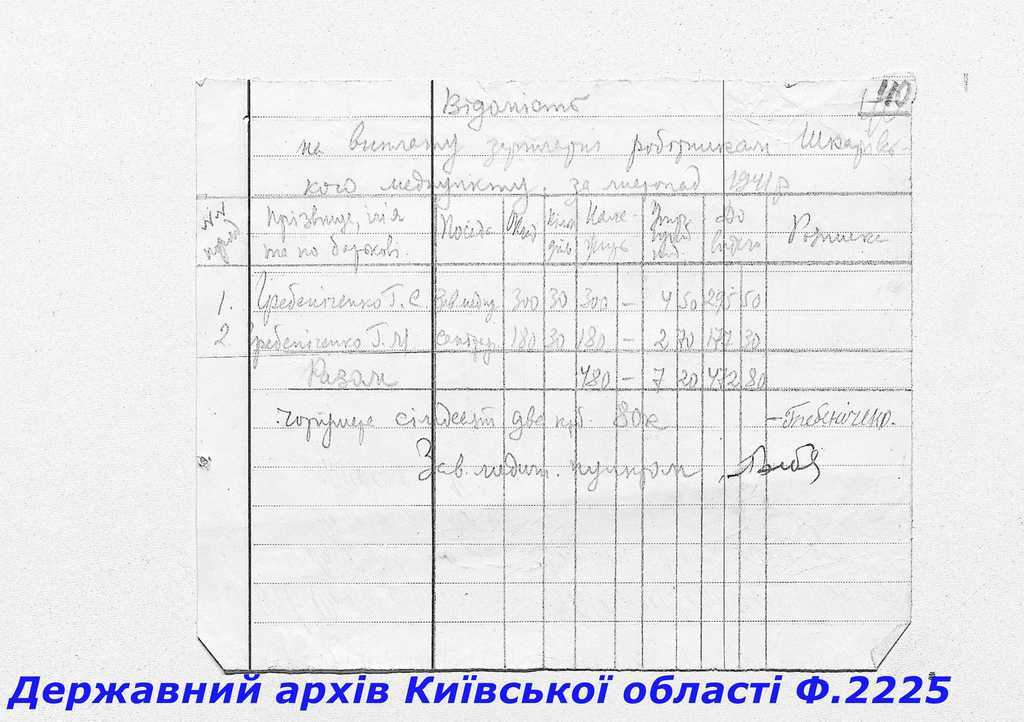 110
Відомість
на виплату зарплати робітникам Шкарівсь-
кого медпункту. за листопад 1941 р
№№ Прізвище, ім'я та по батькові. Посада Оклад Кільк днів Нале-жить До видачі Розписка
1. Гребеніченко Г. С. Зав. медпу. 300 30 300 — 4 50 295 50
2 Гребеніченко Г. М. санітар. 180 30 180 — 2 70 177 30
Разом 480 — 7 20 472 80
Чотириста сімдесят два крб. 80 к — Гребеніченко.
Зав. медич. пунктом
Державний архів Київської області Ф.2225